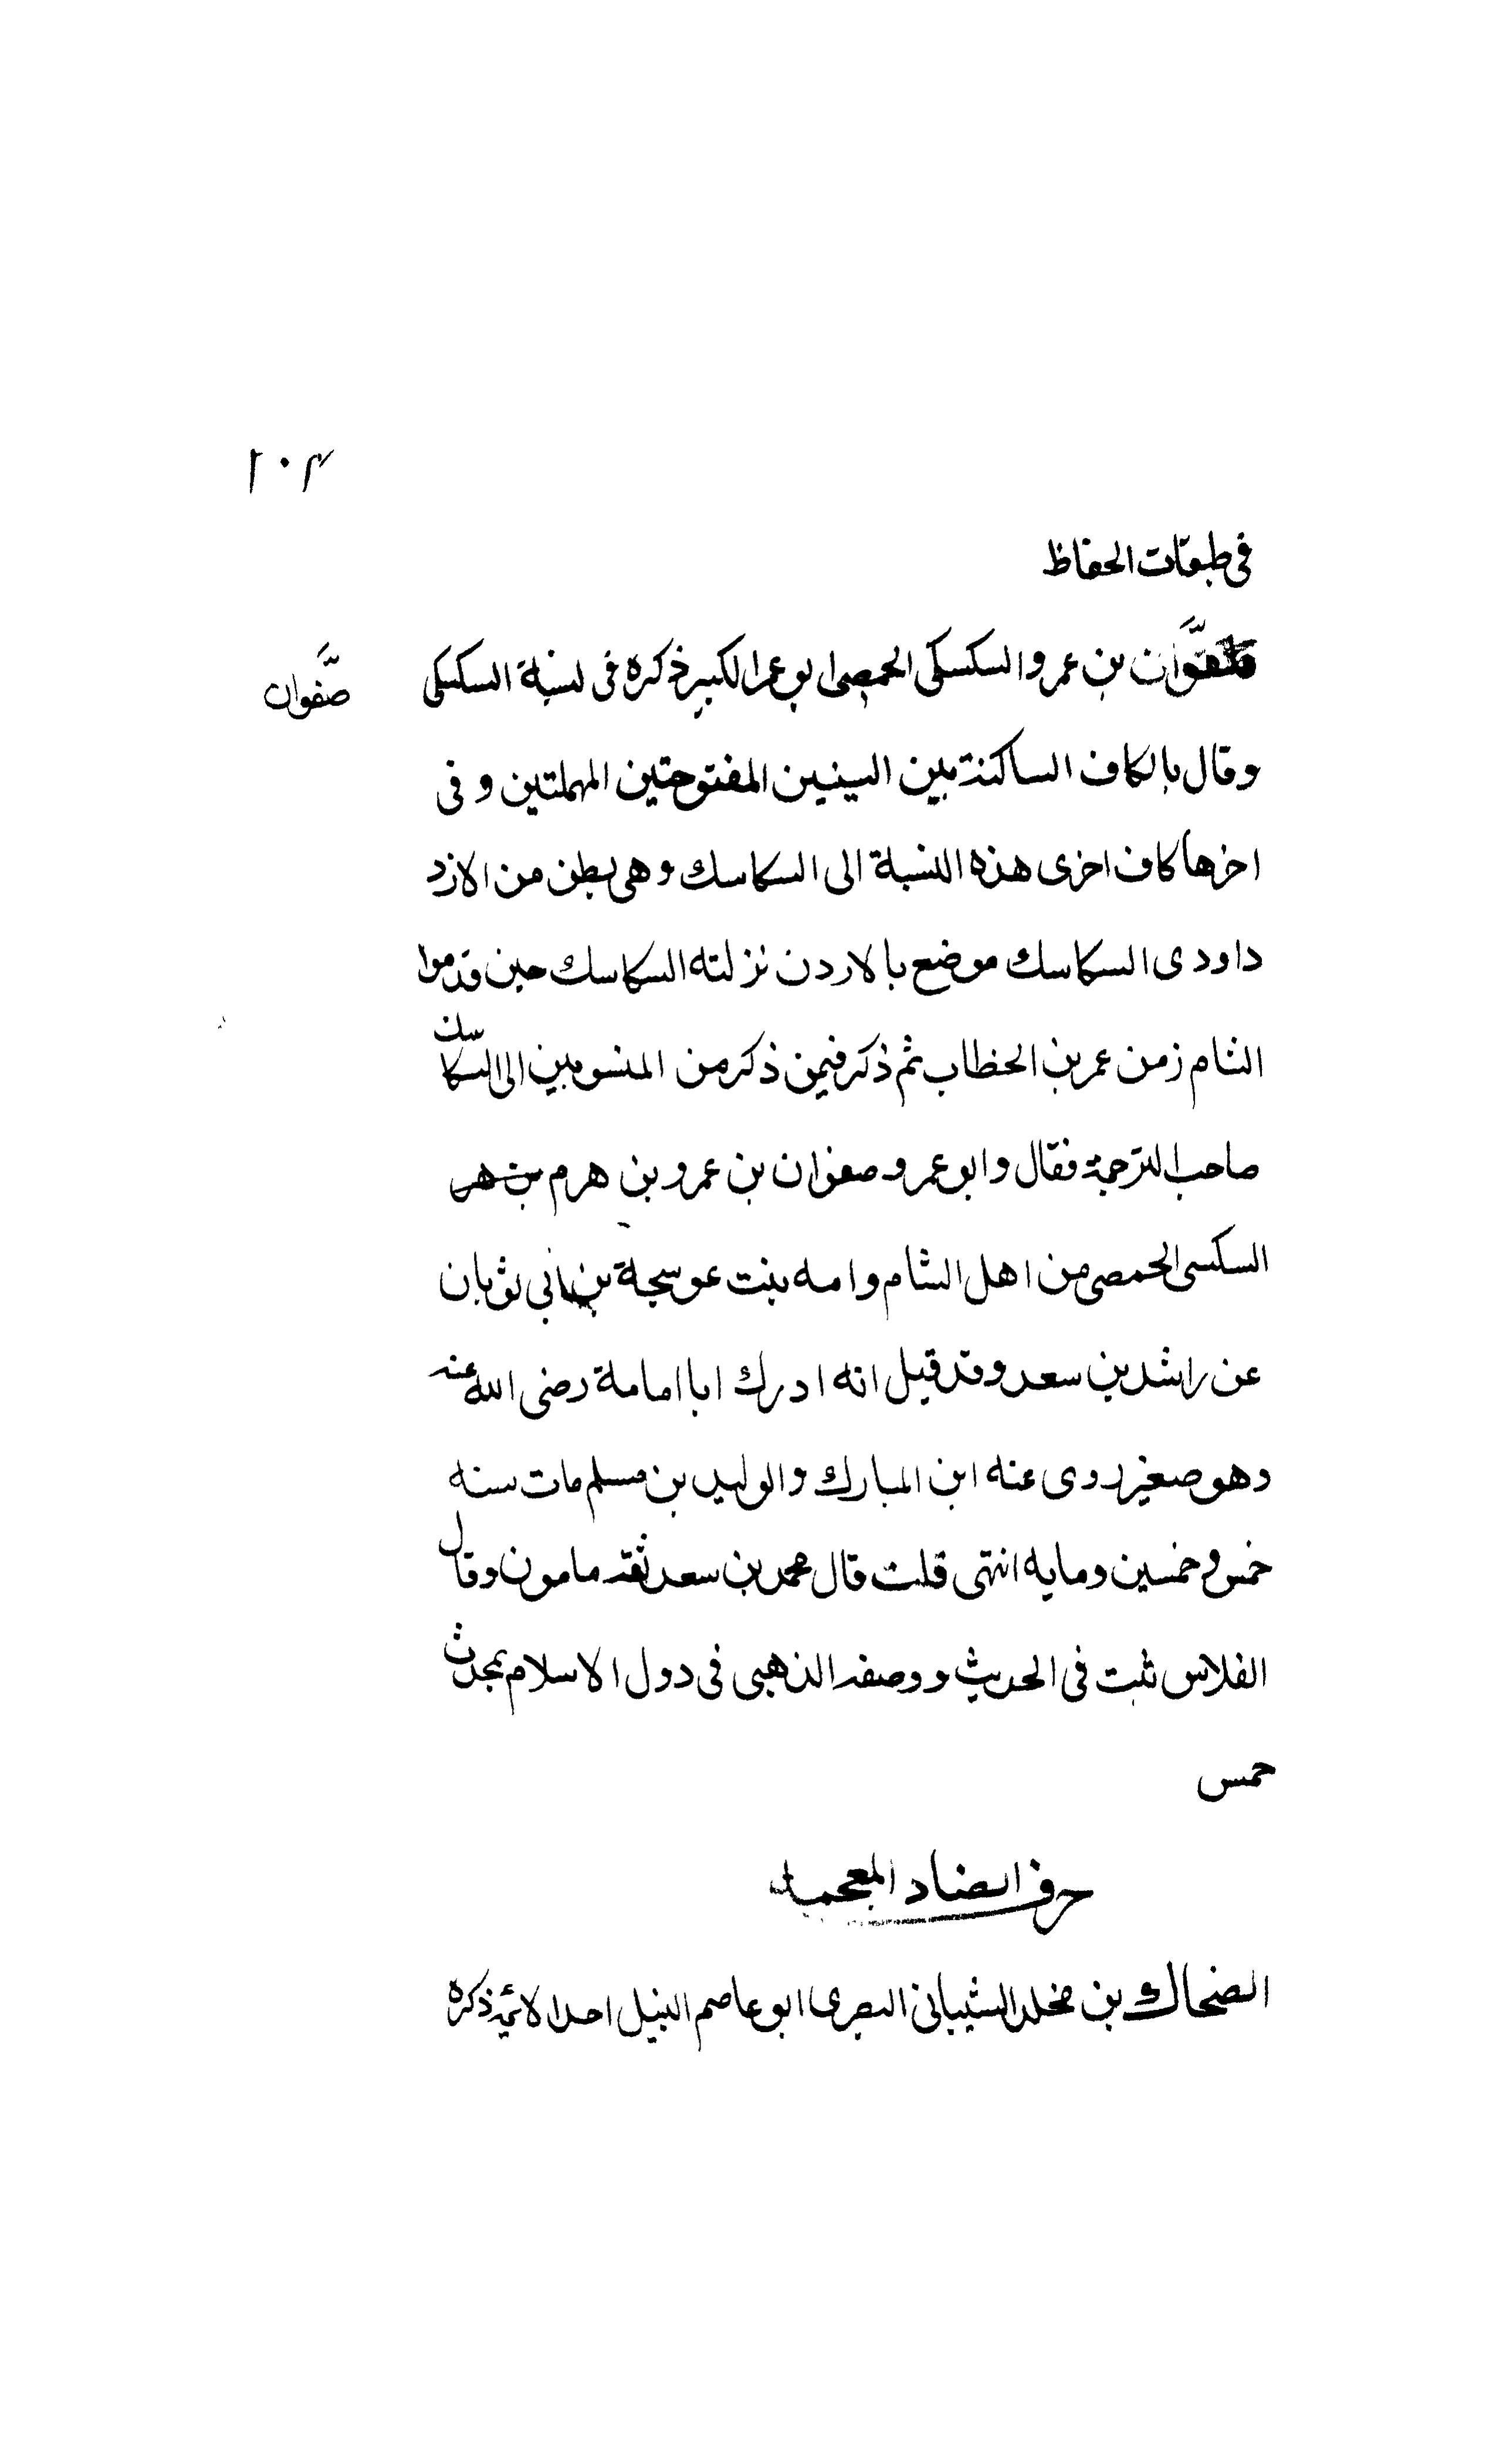 ١٠٣
في طبقات الحفاظ
صفوان بن عمرو السكسكى الحمصى ابو عمر الكبير ذكره فى نسبة السكسكى
صفوان
وقال بالكاف الساكنة بين السينين المفتوحتين المهملتين وفى
اخرها كاف اخرى هذه النسبة الى السكاسك وهى بطن من الازد
دا ودى السكاسك موضع بالاردن نزلته السكاسك حين قدموا
الشام زمن عمر بن الخطاب ثم ذكر فيمن ذكر من المنسوبين الى السكاسك
صاحب الترجمة فقال وابو عمرو صفوان بن عمرو بن هرم
السكسى الحمصى من اهل الشام وامه بنت عوسجة بن ابي ثوبان
عن راشد بن سعد وقد قيل انه ادرك ابا امامة رضى الله عنه
وهو صغير روى عنه ابن المبارك والوليد بن مسلم مات سنه
خمس وخمسين ومايه انتهى قلت قال محمد بن سعد ثقه مامون وقال
الفلاس ثبت فى الحديث ووصفه الذهبى فى دول الاسلام بمحدث
حمس
حرف الضاد المعجمه
الضحاك بن مخلد الشيبانى البصرى ابو عاصم النبيل احد الائمه ذكره